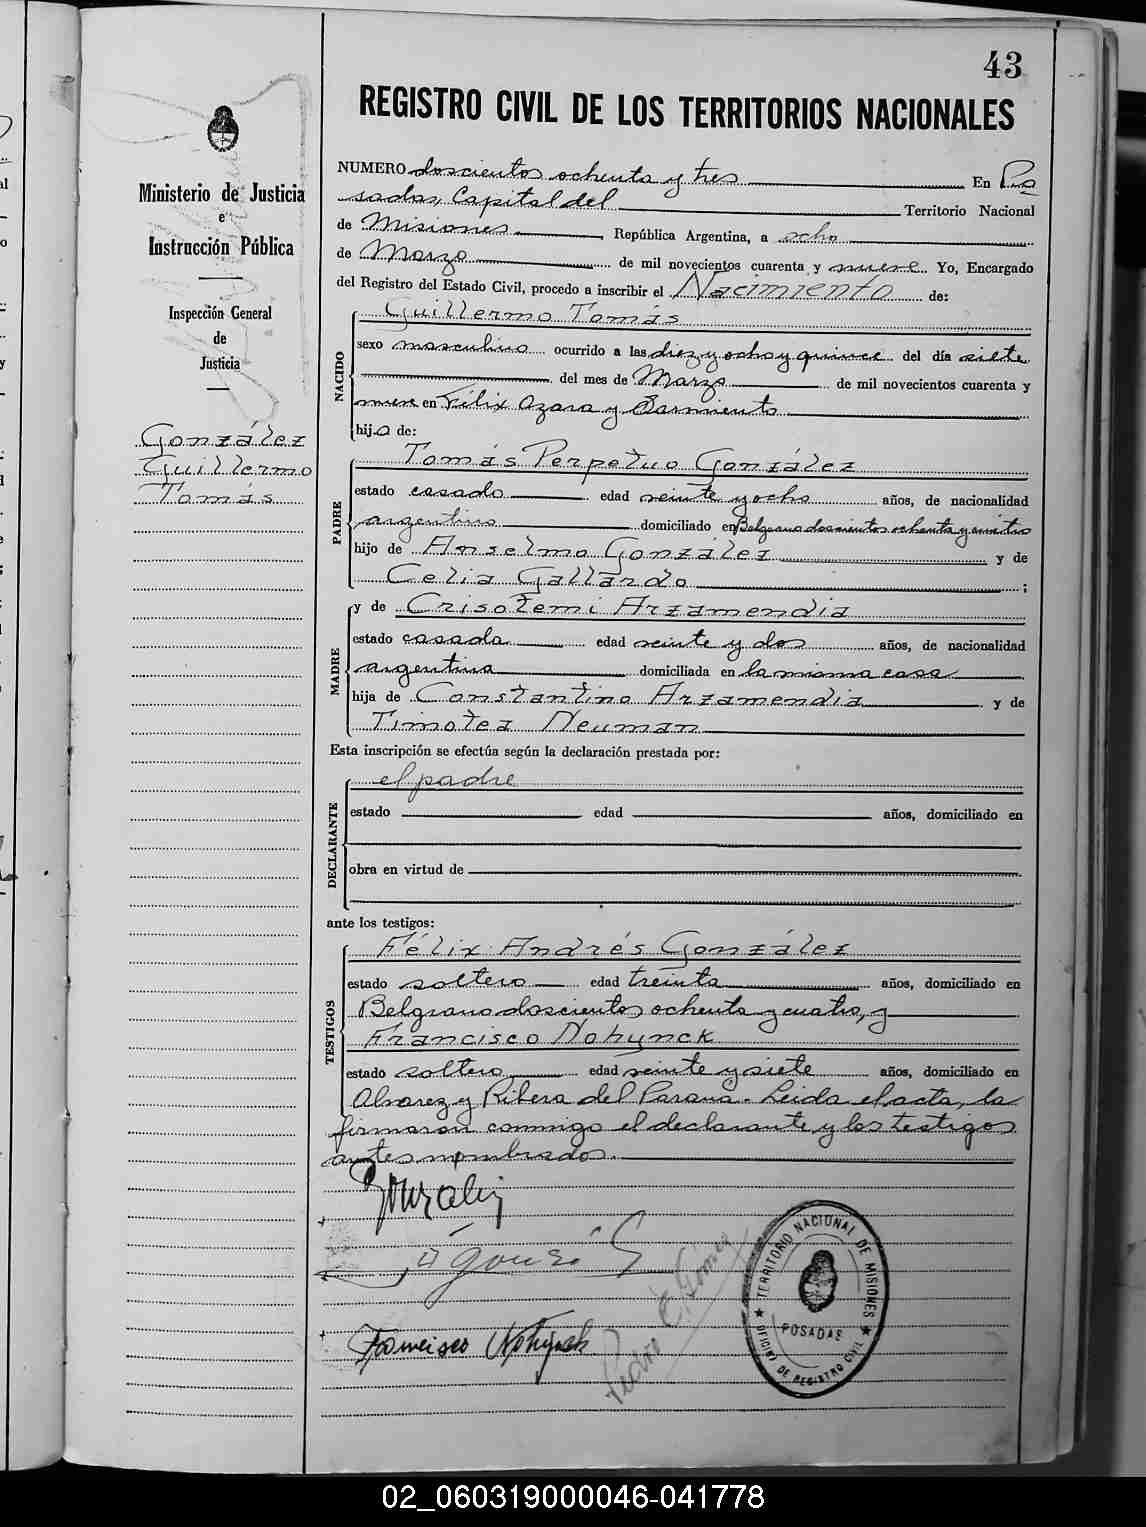 43
REGISTRO CIVIL DE LOS TERRITORIOS NACIONALES
Ministerio de Justicia
e
Instrucción Pública
Inspección General
de
Justicia
González
Guillermo
Tomás
NUMERO doscientos ochenta y tres En Po
sadas, Capital del Territorio Nacional
de Misiones República Argentina, a ocho
de Marzo de mil novecientos cuarenta y nueve Yo, Encargado
del Registro del Estado Civil, procedo a inscribir el Nacimiento de:
Guillermo Tomás
NACIDO
sexo masculino ocurrido a las diez y ocho y quince del día siete
del mes de Marzo de mil novecientos cuarenta y
nueve en Félix Azara y Sarmiento
hijo de:
PADRE
Tomás Perpetuo González
estado casado edad veinte y ocho años, de nacionalidad
argentino domiciliado en Belgrano doscientos ochenta y cuatro
hijo de Anselmo González y de
Celia Gallardo ;
MADRE
y de Crisotemi Arzamendia
estado casada edad veinte y dos años, de nacionalidad
argentina domiciliada en la misma casa
hija de Constantino Arzamendia y de
Timotea Neuman
Esta inscripción se efectúa según la declaración prestada por:
DECLARANTE
el padre
estado edad años, domiciliado en
obra en virtud de
ante los testigos:
TESTIGOS
Félix Andrés González
estado soltero edad treinta años, domiciliado en
Belgrano doscientos ochenta y cuatro, y
Francisco Nohynck
estado soltero edad veinte y siete años, domiciliado en
Alvarez y Ribera del Parana. Leida el acta, la
firmaron conmigo el declarante y los testigos
antes nombrados.
González
Francisco Nohynck
Pedro E. Gómez
TERRITORIO NACIONAL DE MISIONES
POSADAS
OFICINA DE REGISTRO CIVIL
02_060319000046-041778